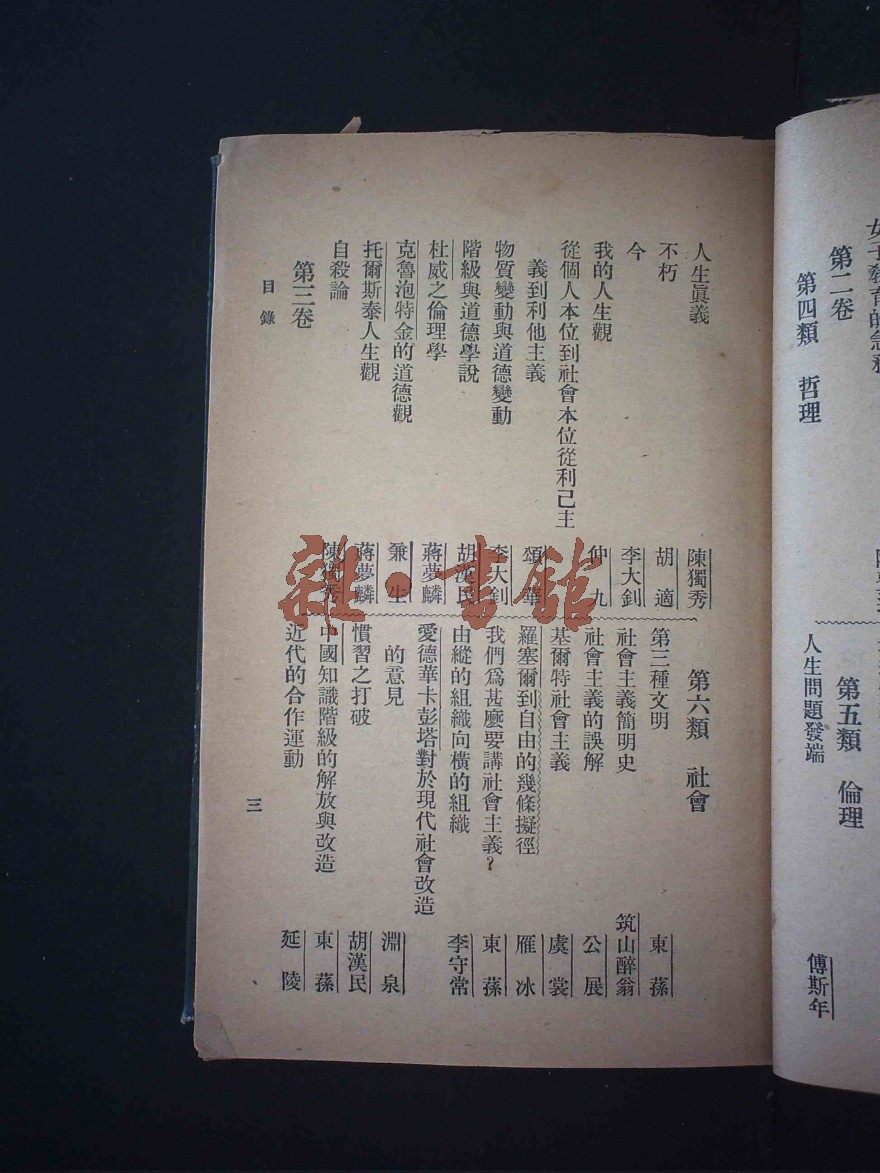 第二卷
第四類 哲理
第五類 倫理
人生問題發端 傅斯年
人生眞義 陳獨秀
不朽 胡適
今 李大釗
我的人生觀 仲九
從個人本位到社會本位從利己主
義到利他主義 頌華
物質變動與道德變動 李大釗
階級與道德學說 胡漢民
杜威之倫理學 蔣夢麟
克魯泡特金的道德觀 兼生
托爾斯泰人生觀 蔣夢麟
自殺論 陳獨秀
第三卷
第六類 社會
第三種文明 東蓀
社會主義簡明史 筑山醉翁
社會主義的誤解 公展
基爾特社會主義 虞裳
羅塞爾到自由的幾條擬徑 雁冰
我們爲甚麽要講社會主義? 東蓀
由縱的組織向橫的組織 李守常
愛德華卡彭塔對於現代社會改造
的意見 淵泉
慣習之打破 胡漢民
中國知識階級的解放與改造 東蓀
近代的合作運動 延陵
目錄
三
雜·書館